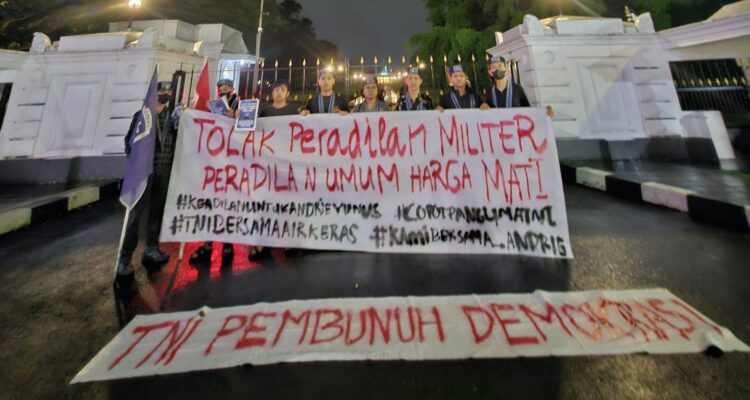 TOLAK Peradilan MILITER
PERADILAN UMUM HARGA MATI
#KEADILANUNTUKANDRIEYUNUS #COPOTPANGLIMATNI
#TNIBERSAMAAIRKERAS #KAMIBERSAMA..ANDRIE
TNI PEMBUNUH DEMOKRASI